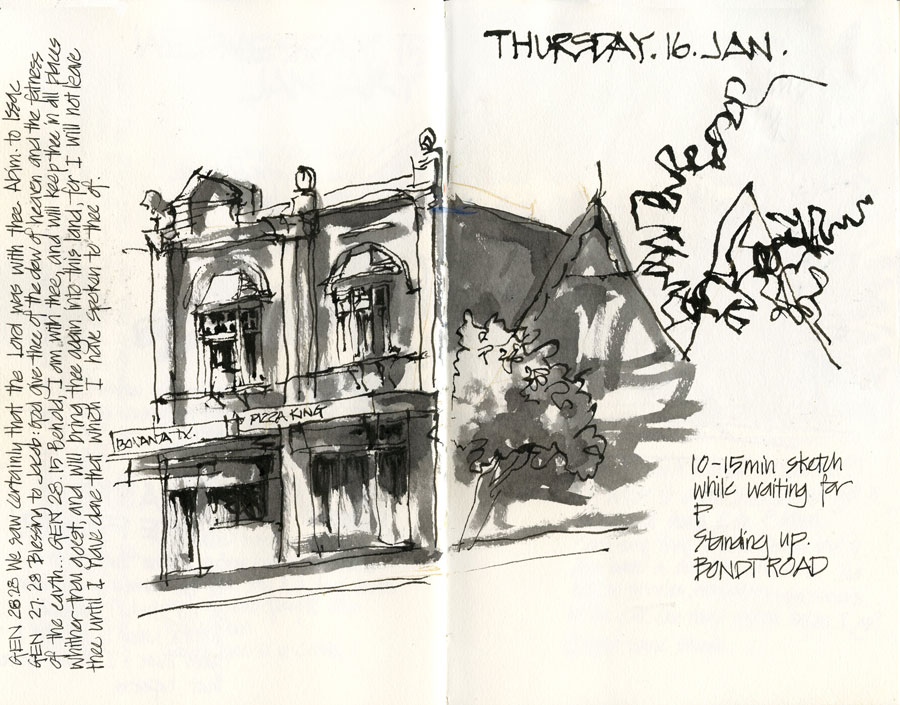 GEN 26.28 We saw certainly that the Lord was with thee Abim. to Issac
GEN 27.28 Blessing to Jacob: God give thee of the dew of heaven and the fatness
of the earth... GEN 28.15 Behold, I am with thee, and will keep thee in all places
whither thou goest, and will bring thee again into this land, for I will not leave
thee until I have done that which I have spoken to thee of.
THURSDAY.16.JAN.
PIZZA KING
BONANZA TX.
10-15min sketch
while waiting for
P
Standing up.
BONDI ROAD